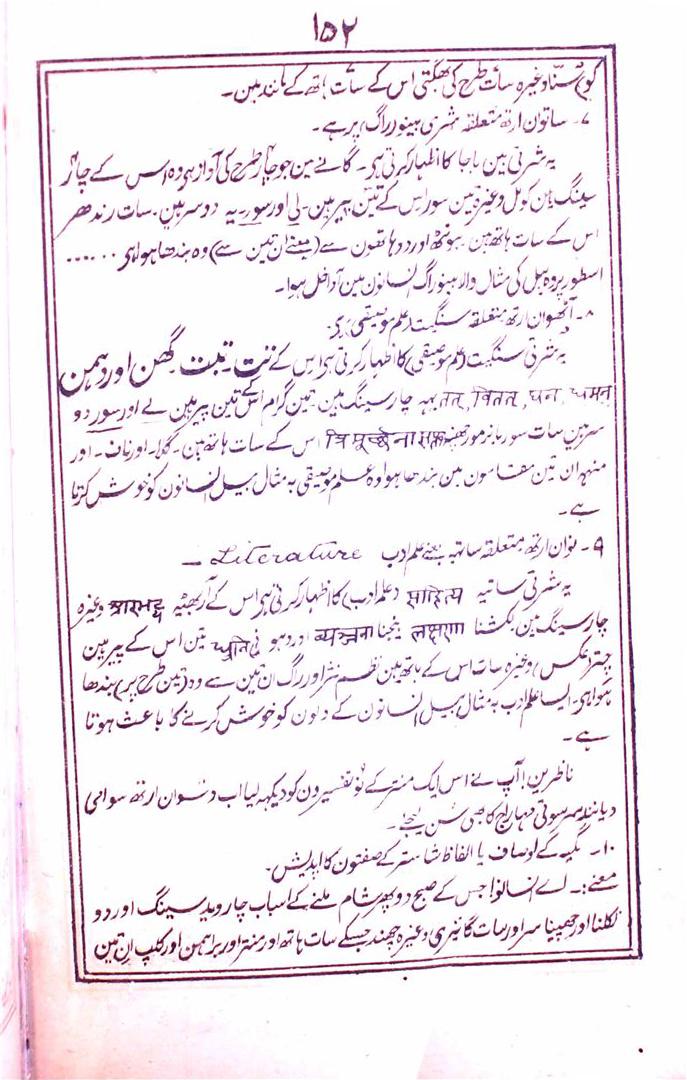 ۱۵۲
وغیرہ سات طرح کی بھگتی اس کے سات ہاتھ کے مانند ہین۔
۷۔ ساتوان ارتھ متعلقہ شری بینو راگ پر ہے۔
یہ شرتی بین باجا کا اظہار کرتی ہی۔ گانے مین جو چار طرح کی آواز ہی وہ اس کے چار
سینگ ہین کومل وغیرہ تین سور اس کے تین پیر ہین۔ لی اور سور۔ یہ دو سر ہین۔ سات رندھر
اس کے سات ہاتھ ہین۔ ہونٹھ اور دو ہاتھون سے (یعنے ان تین سے) وہ بندھا ہوا ہی ......
اسطور پر وہ بیل کی مثال والا بینو راگ انسانون مین آ داخل ہوا۔
۸۔ آٹھوان ارتھ متعلقہ سنگیت (علم موسیقی) ہی۔
یہ شرتی سنگیت (علم موسیقی) کا اظہار کرتی ہی اس کے تت۔ بتت گھن اور دہمن
तत्, वितत्, घन, धमन یہہ چار سینگ ہین۔ تین گرام اس کے تین پیر ہین لے اور سور دو
سر ہین سات سور اس کے سات ہاتھ ہین۔ گلا۔ اور ناف۔ اور
منہہ ان تین مقامون مین بندھا ہوا وہ علم موسیقی بہ مثال بیل انسانون کو خوش کرتا
ہے۔
۹۔ نوان ارتھ متعلقہ ساتہیہ یعنے علم ادب Literature –
یہ شرتی ساتیہ साहित्य (علم ادب) کا اظہار کرتی ہی اس کے آربھٹیہ وغیرہ
چار سینگ ہین لکشنا लक्षणा بنجنا व्यञ्जना اور دہونی تین اس کے پیر ہین
چتر (عکس) وغیرہ سات اس کے ہاتھ ہین نظم نثر اور راگ ان تین سے وہ (تین طرح پر) بندھا
ہوا ہی۔ ایسا علم ادب بہ مثال بیل انسانون کے دلون کو خوش کرنے کا باعث ہوتا
ہے۔
ناظرین! آپ نے اس ایک منتر کے نو تفسیرون کو دیکھہ لیا اب دسوان ارتھ سوامی
دیانند سرسوتی مہاراج کا بھی سُن لیجے۔
۱۰۔ یگیہ کے اوصاف یا الفاظ شاستر کے صفتون کا اپدیش۔
معنے:۔ اے انسانو! جس کے صبح دوپہر شام ملنے کے اسباب چار وید سینگ اور دو
نکلنا اور چھپنا سر اور سات گائیتری وغیرہ چھند جسکے سات ہاتھ اور منتر اور براہمن اور کلپ ان تین